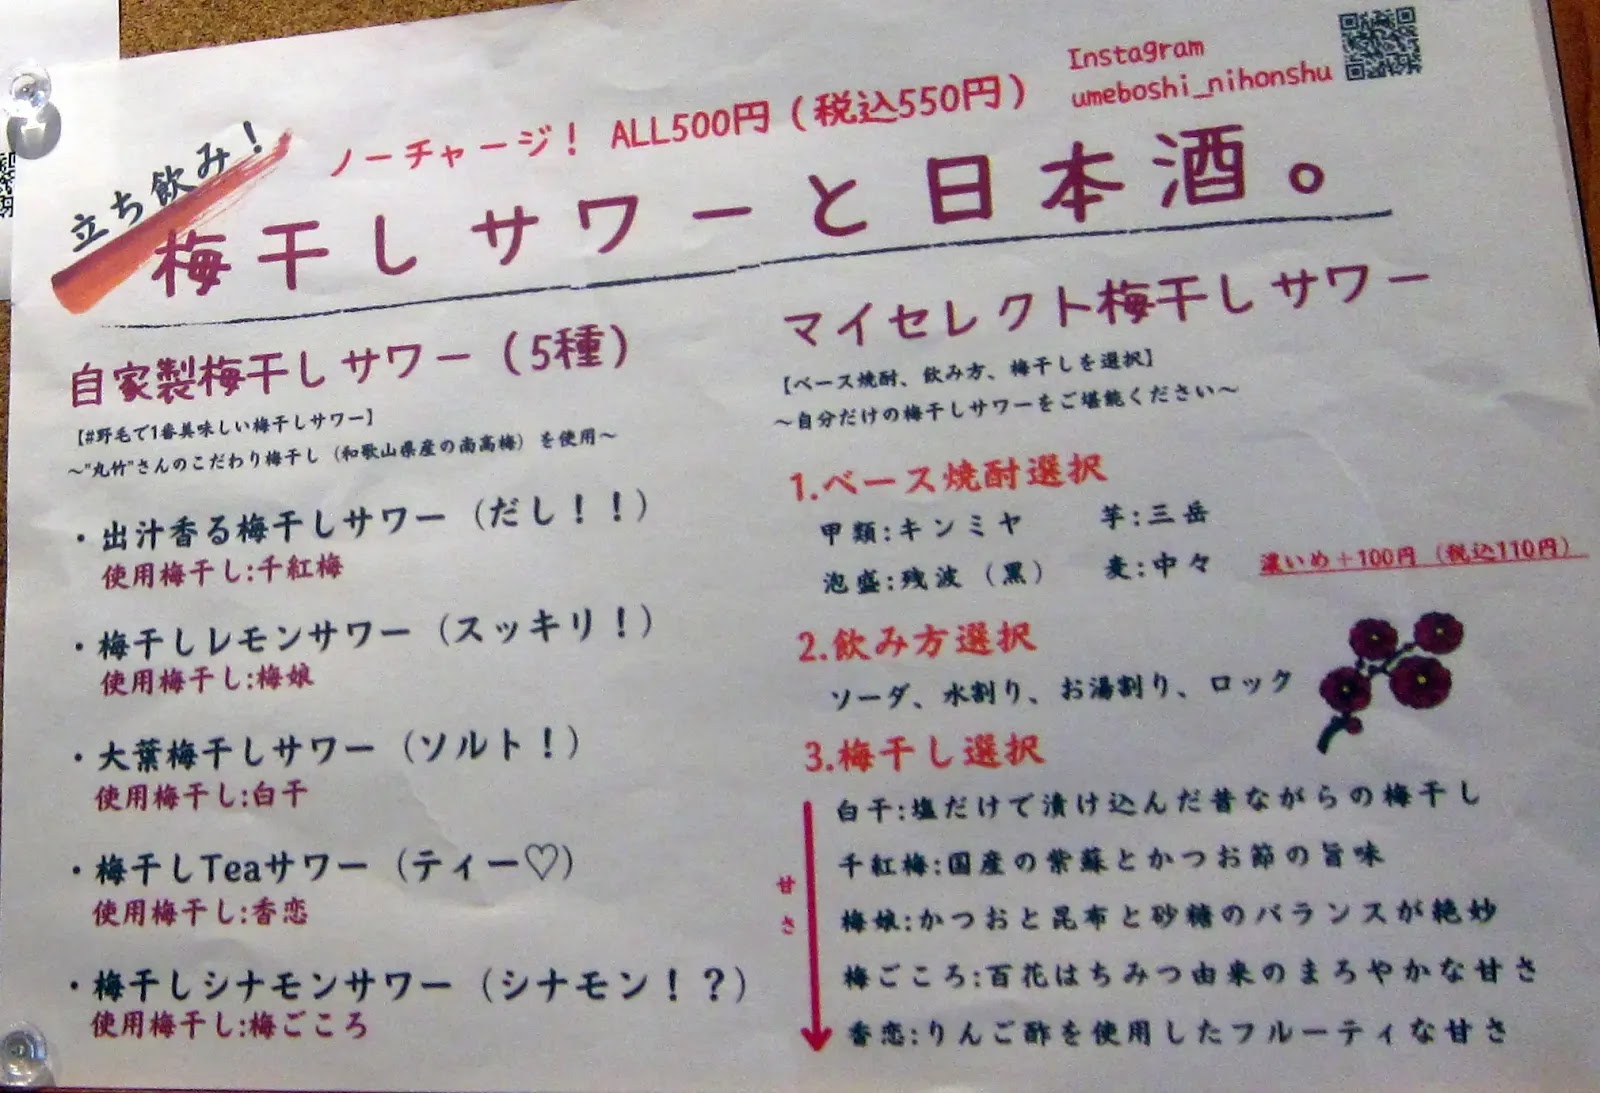 Instagram
umeboshi_nihonshu
ノーチャージ！ ALL500円（税込550円）
立ち飲み！
梅干しサワーと日本酒。
自家製梅干しサワー（5種）
【#野毛で1番美味しい梅干しサワー】
～"丸竹"さんのこだわり梅干し（和歌山県産の南高梅）を使用～
・出汁香る梅干しサワー（だし！！）
使用梅干し:千紅梅
・梅干しレモンサワー（スッキリ！）
使用梅干し:梅娘
・大葉梅干しサワー（ソルト！）
使用梅干し:白干
・梅干しTeaサワー（ティー♡）
使用梅干し:香恋
・梅干しシナモンサワー（シナモン！？）
使用梅干し:梅ごころ
マイセレクト梅干しサワー
【ベース焼酎、飲み方、梅干しを選択】
～自分だけの梅干しサワーをご堪能ください～
1.ベース焼酎選択
甲類:キンミヤ 芋:三岳
泡盛:残波（黒） 麦:中々 濃いめ＋100円（税込110円）
2.飲み方選択
ソーダ、水割り、お湯割り、ロック
3.梅干し選択
甘さ
白干:塩だけで漬け込んだ昔ながらの梅干し
千紅梅:国産の紫蘇とかつお節の旨味
梅娘:かつおと昆布と砂糖のバランスが絶妙
梅ごころ:百花はちみつ由来のまろやかな甘さ
香恋:りんご酢を使用したフルーティな甘さ